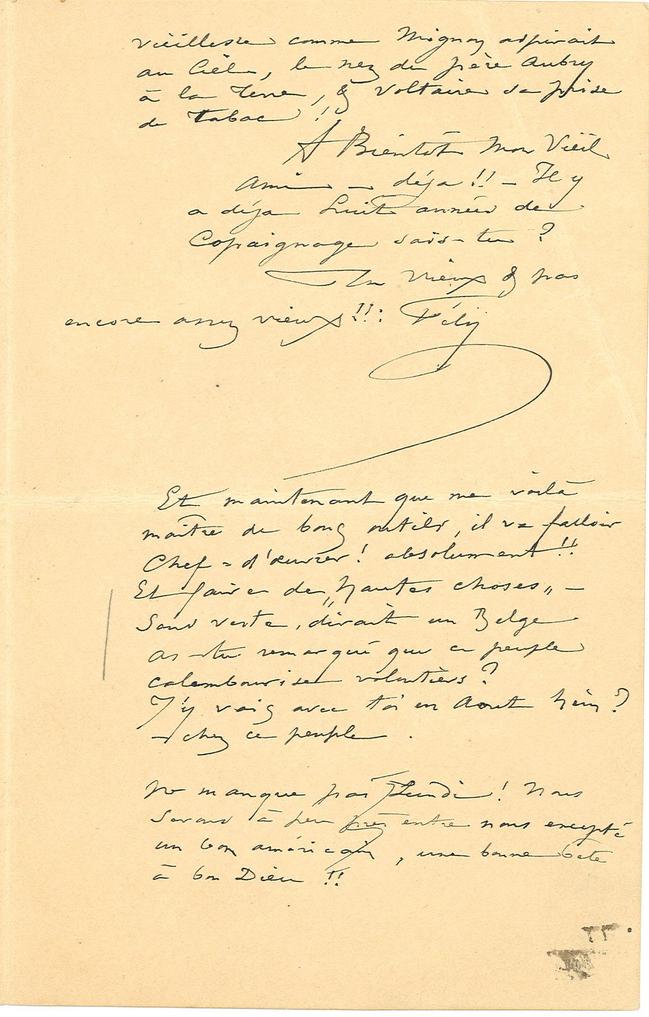 vieillesse comme Mignon aspirait
au Ciel, le nez du père Aubry
à la Terre, & Voltaire sa prise
de tabac !!
A Bientôt Mon Vieil
Ami – déja !! – Il y
a déja huit années de
Copaignage sais-tu ?
Un vieux & pas
encore assez vieux !!! Fély
Et maintenant que me voilà
maître de bons outils, il va falloir
Chef-d'œuvrer ! absolument !!
Et faire de „hautes choses„ –
Sans verte, disait un Belge
as-tu remarqué que ce peuple
calembourise volontiers ?
J'y vais avec toi en Aout hein ?
– chez ce peuple .
Ne manque pas Lundi ! Nous
serons à peu près entre nous excepté
un bon américain, une bonne bête
à bon Dieu !!